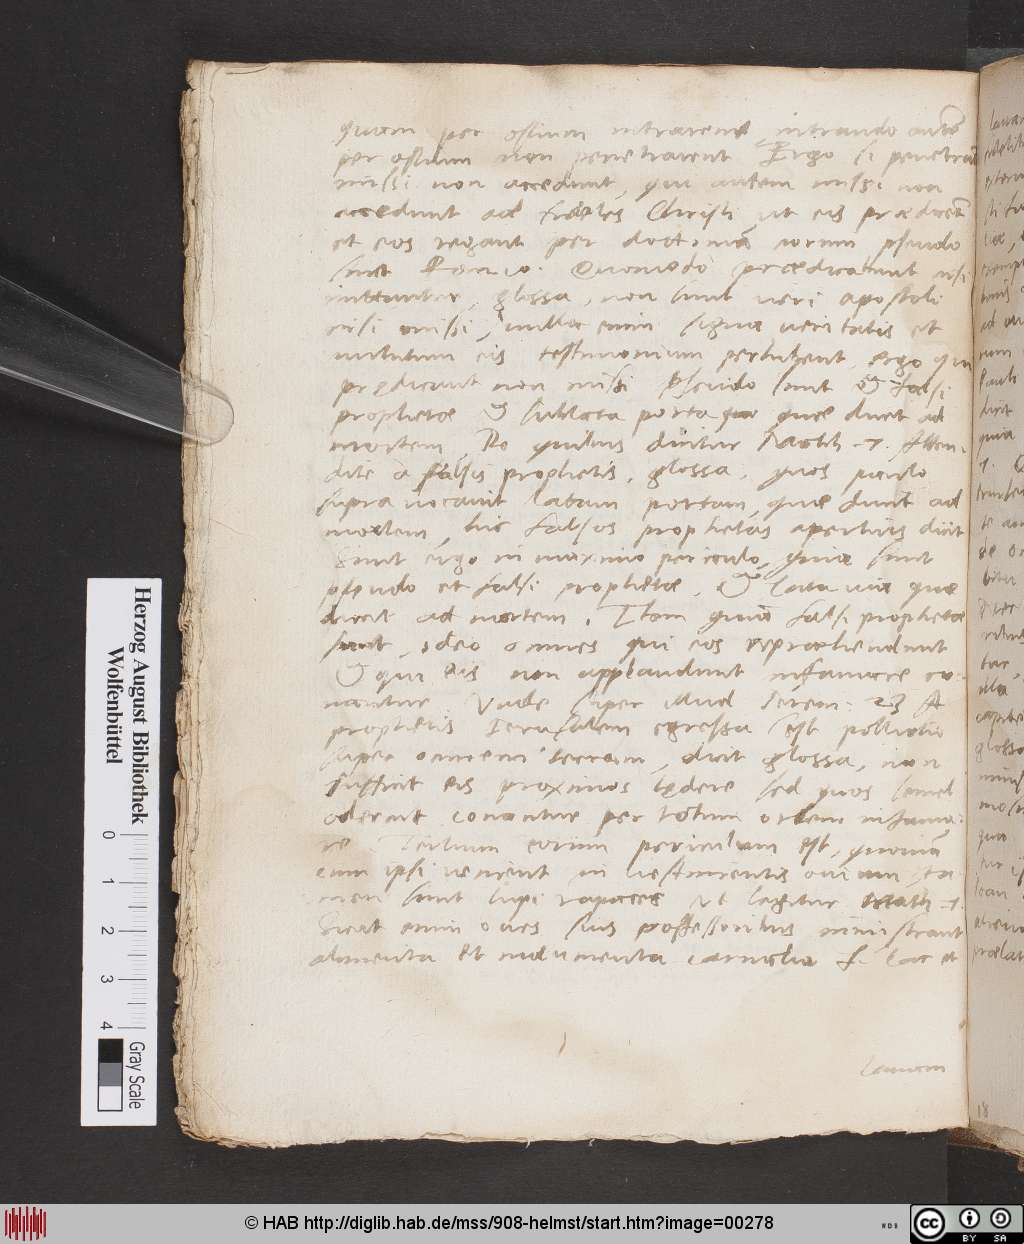 quam per ostium intrarent, intrando autē
per ostium non penetrarent Ergo si penetrāt
missi non accedunt, qui autem missi non
accedunt ad fideles Christi ut eis prædicēt
et eos regant per doctrinā eorum pseudo
sunt Rom: 10. Quomodo prædicabunt nisi
mittantur, glossa, non sunt veri apostoli
nisi missi, nulla enim signa veritatis et
virtutum eis testimonium perhibent, ergo qui
prędicant non missi Pseudo sunt & falsi
prophetæ & lata porta quæ ducit ad
mortem, De quibus dicitur Math 7. Atten-
dite a falsis prophetis, glossa, quos paulo
supra vocavit latam portam, quæ ducit ad
mortem, hic falsos prophetas apertius dicit
Sunt ergo in maximo periculo, quia sunt
pseudo et falsi prophetæ, & lata via quæ
ducit ad mortem. Item quia falsi prophetæ
sunt, ideo omnes qui eos reprehendunt
& qui eis non applaudunt infamare co-
nantur Unde super illud Ierem: 23 A
prophetis Ierusalem egressa est pollutio
super omnem terram, dicit glossa, non
sufficit eis proximos lędere sed quos semel
oderint conantur per totum orbem infama-
re. Tertium eorum periculum est, quoniā
cum ipsi veniunt in vestimentis ovium, ta
men sunt lupi rapaces ut legitur Math 7.
Sicut enim oves suis possessoribus ministrant
alimenta et indumenta carnalia s. lac et
lanam
18
Herzog August Bibliothek
Wolfenbüttel
0 1 2 3 4
Gray Scale
© HAB http://diglib.hab.de/mss/908-helmst/start.htm?image=00278
WDB
cc BY SA